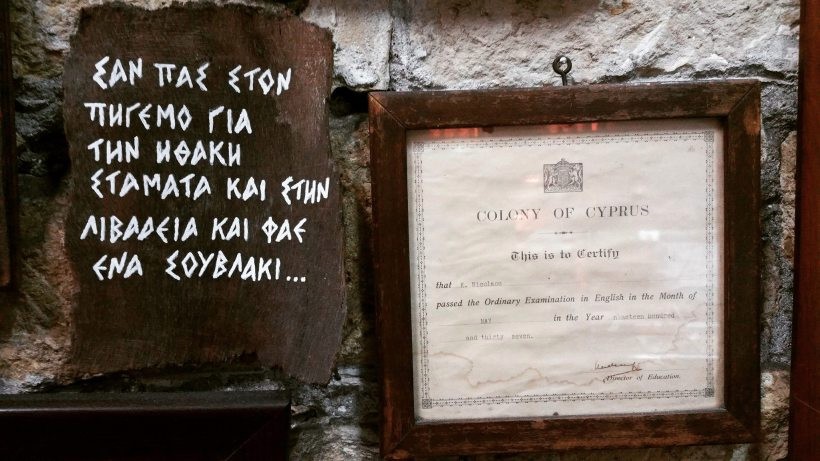 ΣΑΝ ΠΑΣ ΣΤΟΝ
ΠΗΓΕΜΟ ΓΙΑ
ΤΗΝ ΗΘΑΚΗ
ΣΤΑΜΑΤΑ ΚΑΙ ΣΤΗΝ
ΛΙΒΑΔΕΙΑ ΚΑΙ ΦΑΕ
ΕΝΑ ΣΟΥΒΛΑΚΙ...
COLONY OF CYPRUS
This is to Certify
that K. Nicolaou
passed the Ordinary Examination in English in the Month of
MAY in the Year nineteen hundred
and thirty seven.
Director of Education.